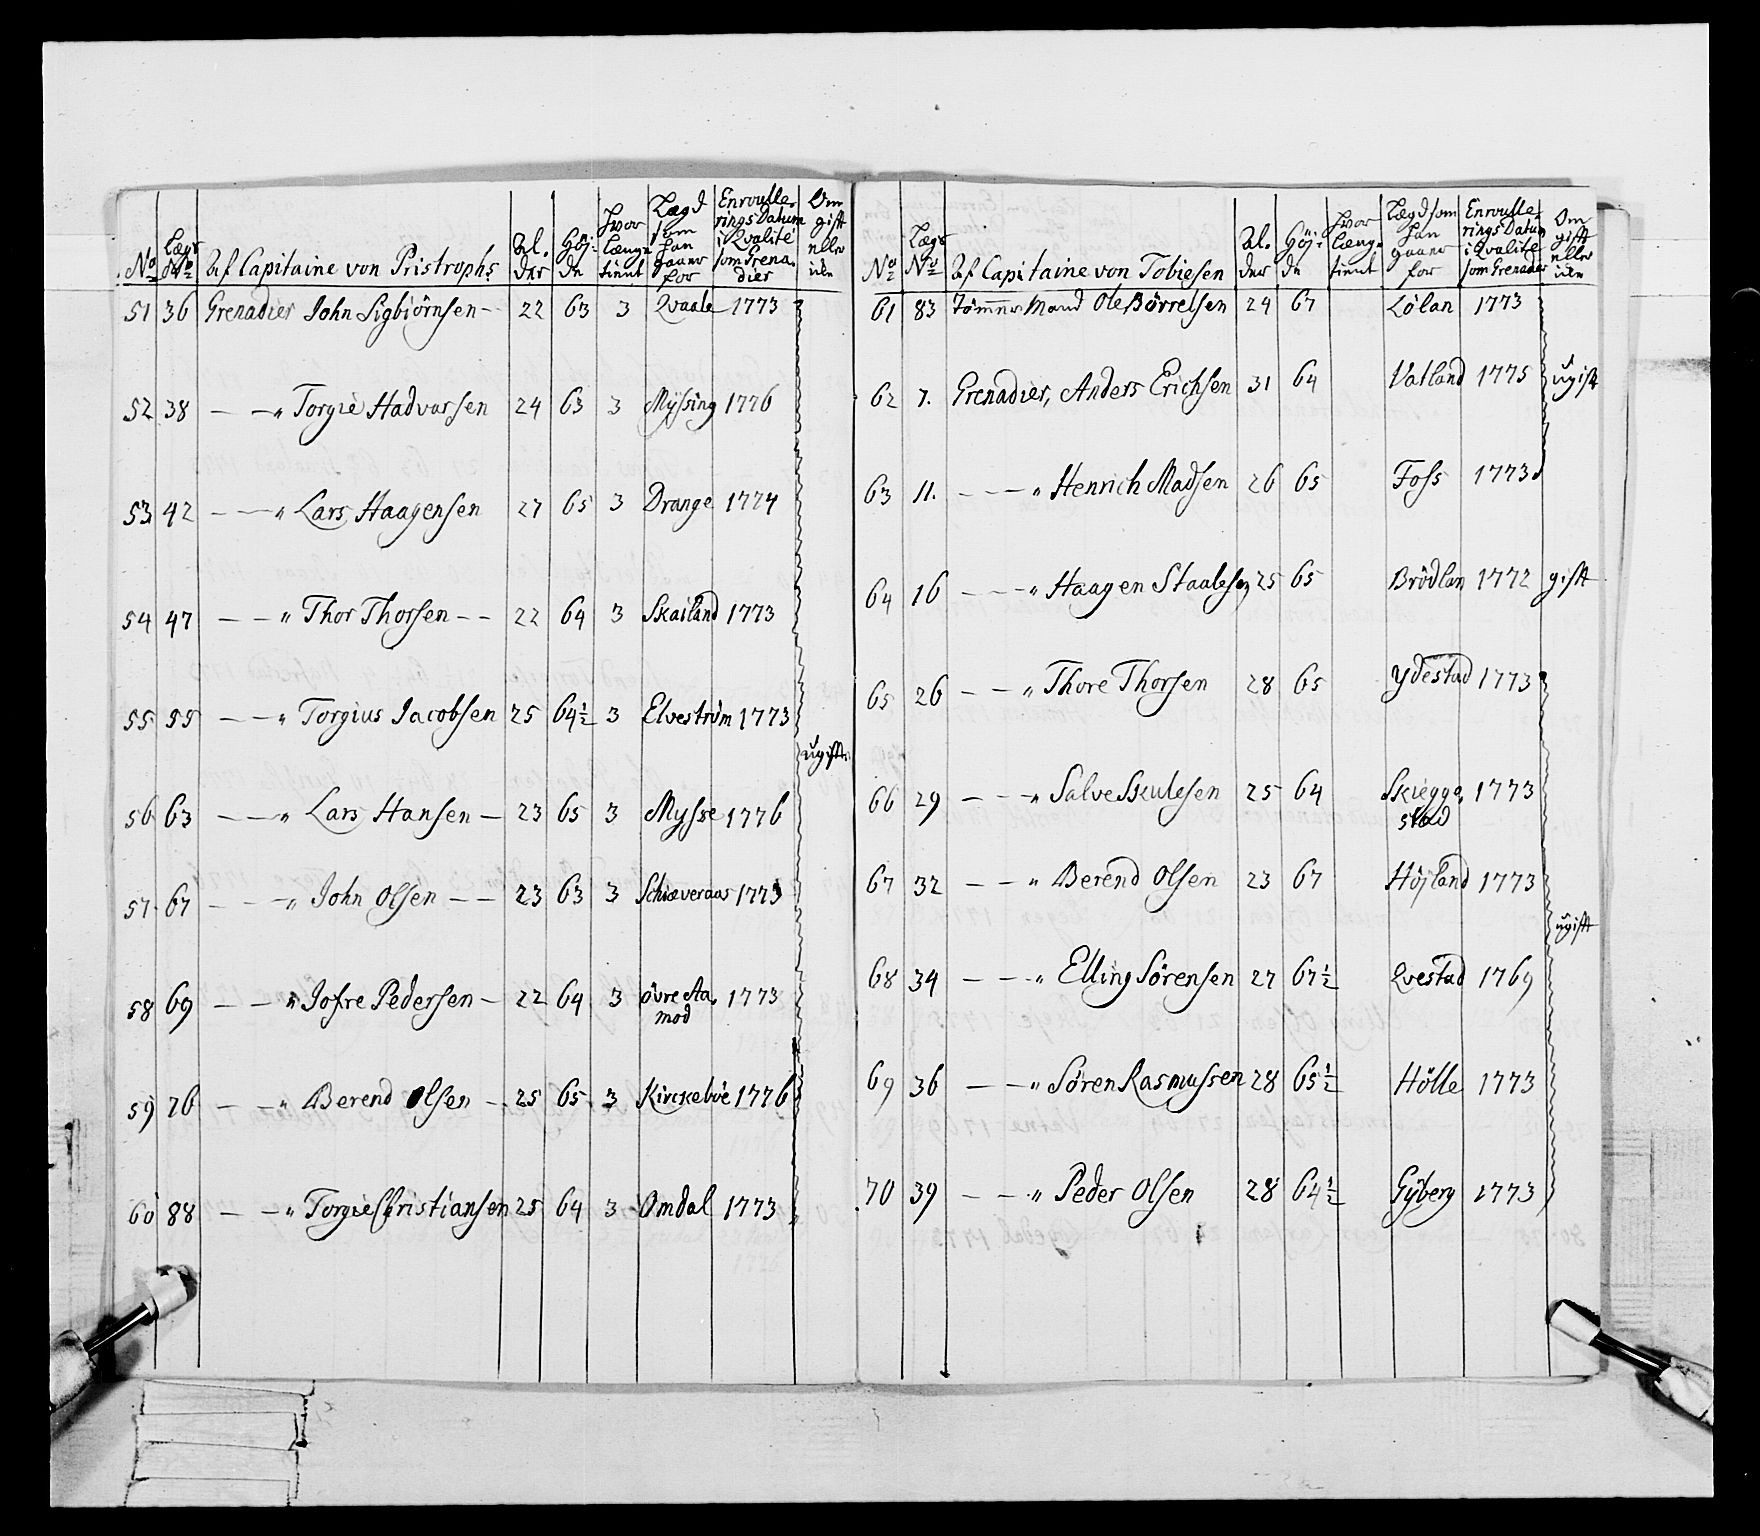 No | Lægs No | Af Capitaine von Pristrophs | Al. der | Höj: de | Hvor længe tient | Lægd som han gaaer for | Enroullerings Datum i Qvalité som Grenadier | Om gift eller ikke
51 | 36 | Grenadier John Sigbiörnsen - | 22 | 63 | 3 | Qvaale | 1773
52 | 38 | — — „ Torgie Hadvarsen | 24 | 63 | 3 | Myssing | 1776
53 | 42 | — — „ Lars Haagensen | 27 | 65 | 3 | Drange | 1774
54 | 47 | — — „ Thor Thorsen - - | 22 | 64 | 3 | Skailand | 1773
55 | 55 | — — „ Torgius Jacobsen | 25 | 64½ | 3 | Elveström | 1773
ugifte
56 | 63 | — — „ Lars Hansen — | 23 | 65 | 3 | Mysse | 1776
57 | 67 | — — „ John Olsen — — | 23 | 63 | 3 | Schiæveraas | 1773
58 | 69 | — — „ Jofre Pedersen - | 22 | 64 | 3 | övre Aa, | 1773
mod
59 | 76 | — — „ Berend Olsen - | 25 | 65 | 3 | Kirckeböe | 1776
60 | 88 | — — „ Torgie Christiansen | 25 | 64 | 3 | Omdal | 1773
No | Lægs No | Af Capitaine von Tobiesen | Al. der | Höj: de | Hvor længe tient | Lægd som han gaaer for | Enroullerings Datum i Qvalité som Grenadier | Om gift eller ikke
61 | 83 | Tömmer Mand Ole Börrelsen | 24 | 67 | Lölan | 1773
62 | 7. | Grenadier, Anders Erichsen | 31 | 64 | Vatland | 1775 | ugift
63 | 11. | — — — „ Henrich Madsen | 26 | 65 | Foss | 1773
64 | 16 | — — — „ Haagen Staalesen | 25 | 65 | Brödlan | 1772 | gift
65 | 26 | — — „ Thore Thorsen | 28 | 65 | Ydestad | 1773
66 | 29 | — — „ Salve Skulesen | 25 | 64 | Skiegge, | 1773
stad
67 | 32 | — — „ Berend Olsen | 23 | 67 | Höjland | 1773
ugift
68 | 34 | — — — „ Elling Sörensen | 27 | 67½ | Qvestad | 1769
69 | 36 | — — „ Sören Rasmussen | 28 | 65½ | Hölle | 1773
70 | 39 | — — „ Peder Olsen | 28 | 64½ | Gÿberg | 1773